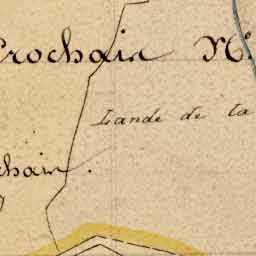 Prochain N°
Lande de la
chain.